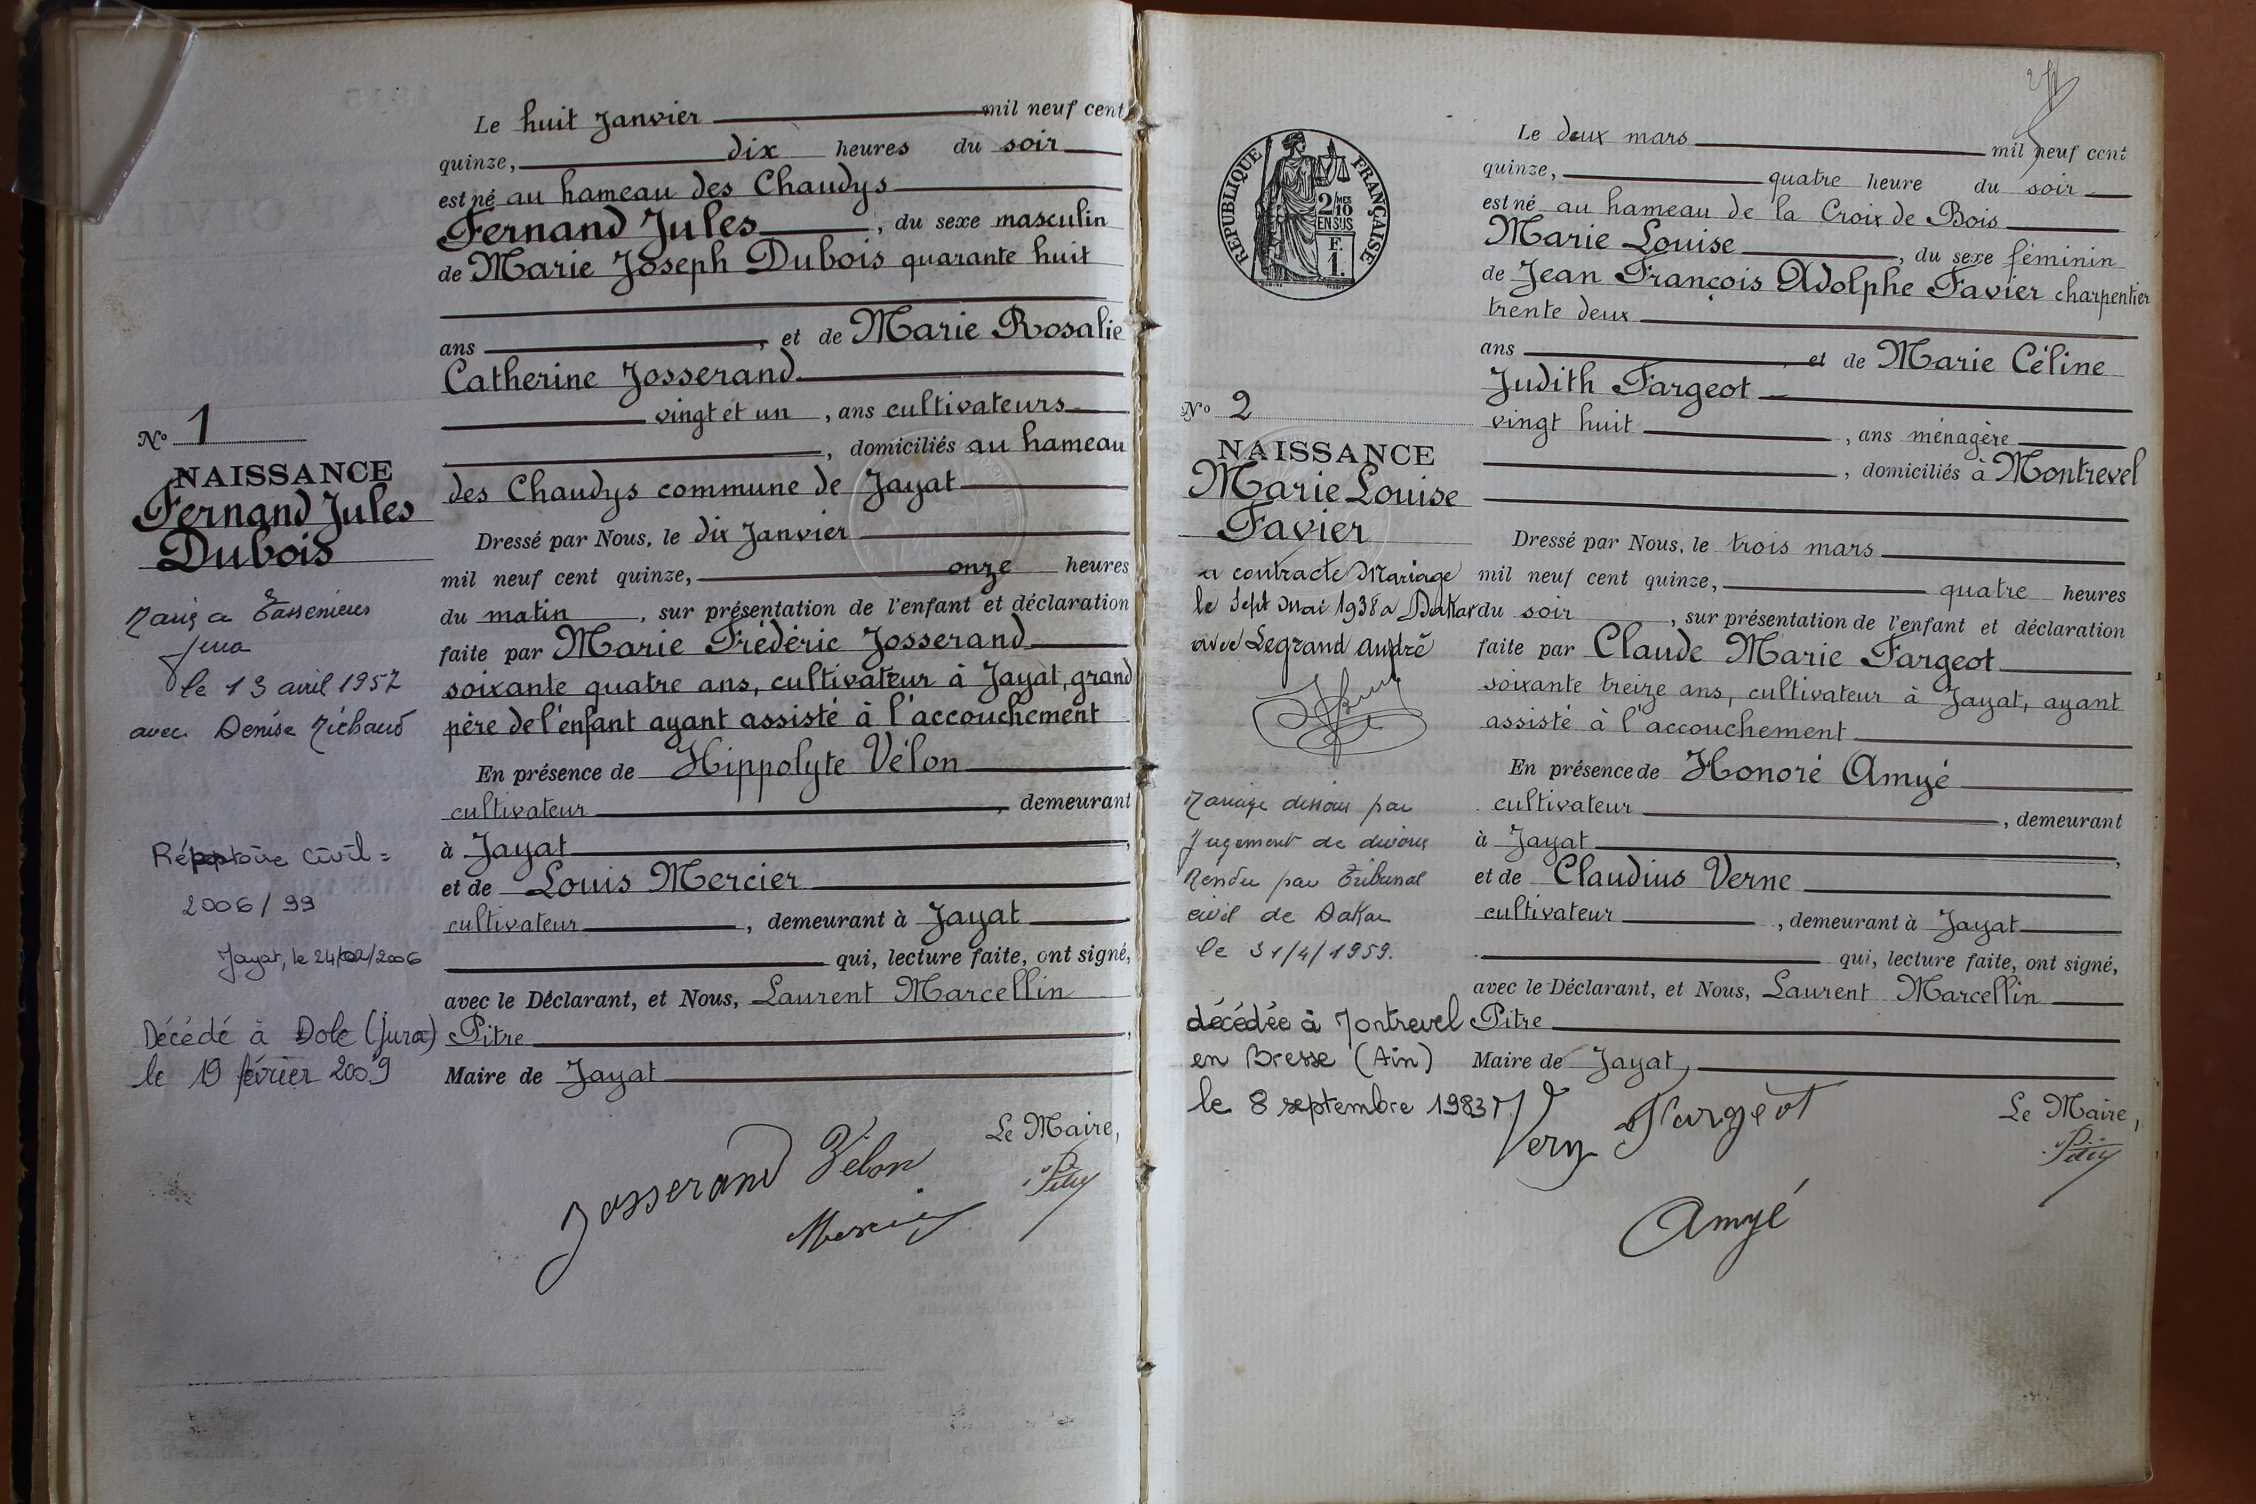 Le huit Janvier mil neuf cent
quinze, dix heures du soir
est né au hameau des Chaudys
Fernand Jules, du sexe masculin
de Marie Joseph Dubois quarante huit
ans, et de Marie Rosalie
Catherine Josserand
vingt et un, ans cultivateurs
, domiciliés au hameau
des Chaudys commune de Jayat
Dressé par Nous, le dix Janvier
mil neuf cent quinze, onze heures
du matin, sur présentation de l'enfant et déclaration
faite par Marie Frédéric Josserand
soixante quatre ans, cultivateur à Jayat, grand
père de l'enfant ayant assisté à l'accouchement
En présence de Hippolyte Vélon
cultivateur, demeurant
à Jayat,
et de Louis Mercier
cultivateur, demeurant à Jayat
qui, lecture faite, ont signé,
avec le Déclarant, et Nous, Laurent Marcellin
Pitre,
Maire de Jayat
Le Maire,
Josserand Vélon
Mercier
Pitre
No 1
NAISSANCE
Fernand Jules
Dubois
Marié à Tassenières
Jura
le 13 avril 1957
avec Denise Michaud
Répertoire Civil =
2006/99
Jayat, le 24/02/2006
Décédé à Dole (Jura)
le 19 février 2009
RÉPUBLIQUE FRANÇAISE
2/10 MES
EN SUS
F.
1.
No 2
NAISSANCE
Marie Louise
Favier
a contracté Mariage
le Sept Mai 1938 a Dakar
avec Legrand André
Mariage dissous par
Jugement de divorce
Rendu par Tribunal
civil de Dakar
le 31/4/1959.
décédée à Montrevel
en Bresse (Ain)
le 8 septembre 1983
Le deux mars mil neuf cent
quinze, quatre heure du soir
est né au hameau de la Croix de Bois
Marie Louise, du sexe féminin
de Jean François Adolphe Favier charpentier
trente deux
ans, et de Marie Céline
Judith Fargeot
vingt huit, ans ménagère
, domiciliés à Montrevel
Dressé par Nous, le trois mars
mil neuf cent quinze, quatre heures
du soir, sur présentation de l'enfant et déclaration
faite par Claude Marie Fargeot
soixante treize ans, cultivateur à Jayat, ayant
assisté à l'accouchement
En présence de Honoré Amyé
cultivateur, demeurant
à Jayat,
et de Claudius Verne
cultivateur, demeurant à Jayat
qui, lecture faite, ont signé,
avec le Déclarant, et Nous, Laurent Marcellin
Pitre
Maire de Jayat,
Le Maire,
Fargeot
Pitre
Amyé